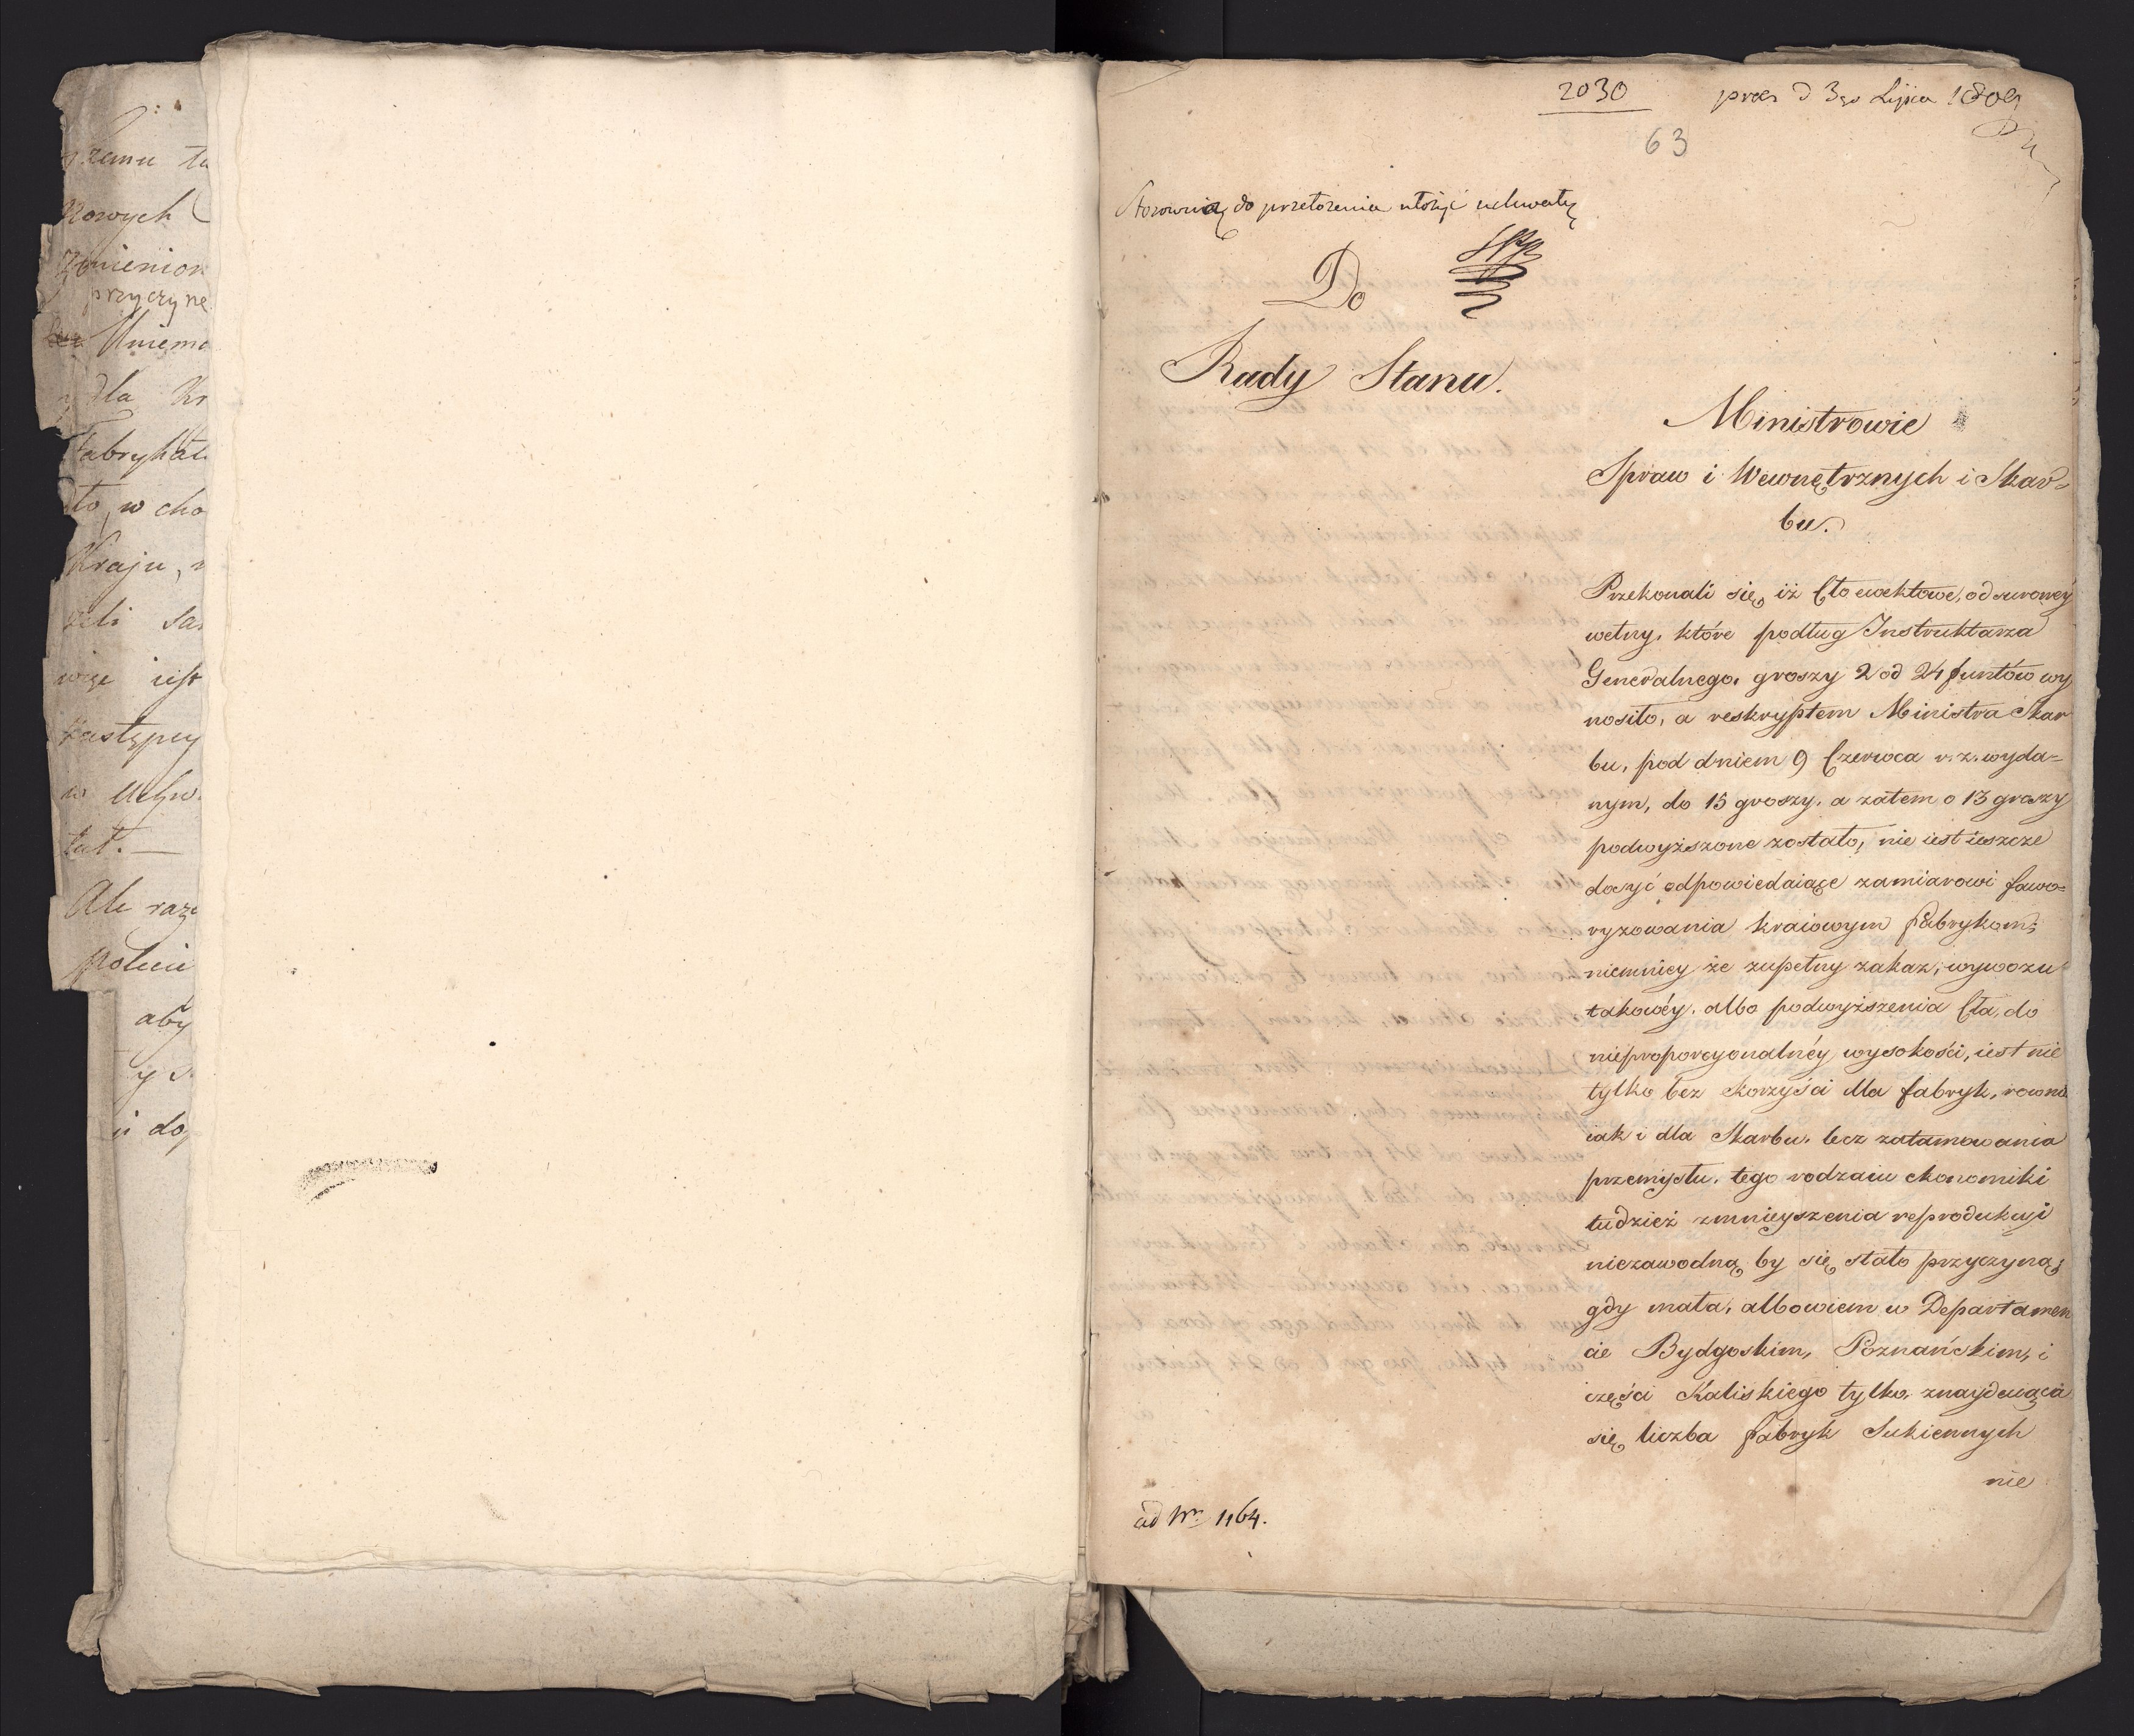 żemu ta
Nowych
Zmienion
przyczynę
Mniema
dla Kr
Fabrykat
to, w cho
Kraju,
żeli
więc iest
następcy
w Uchw
tat. —
Ale raz
policie
aby
y
doj
2030
præs d 3go Lipca 1809
63
Stosownią do przełożenia ułożyć uchwałę
Do
Rady Stanu.
Ministrowie
Spraw i Wewnętrznych i Skar=
bu.
Przekonali się, iż Cło ewektowe, od surowéy
wełny, które podług Instruktarza
Generalnego, groszy 2 od 24 funtów wy
nosiło, a reskryptem Ministra Skar
bu, pod dniem 9 Czerwca r. z. wyda=
nym, do 15 groszy, a zatem o 13 groszy
podwyższone zostało, nie iest ieszcze
dosyć odpowiedaiące zamiarowi fawo=
ryzowania kraiowym fabrykom;
niemniey że zupełny zakaz, wywozu
takowéy, albo podwyższenia Cła, do
nieproporcyonalnéy wysokości, iest nie
tylko bez korzyści dla fabryk, rowno
iak i dla Skarbu, lecz zatamowania
przemysłu, tego rodzaiu ekonomiki
tudzież zmnieyszenia reprodukcyi
niezawodną by się stało przyczyną;
gdy mała, albowiem w Departamen
cie Bydgoskim, Poznańskim, i
części Kaliskiego tylko, znayduiąca
się liczba fabryk Sukiennych
nie
ad Nr. 1164.